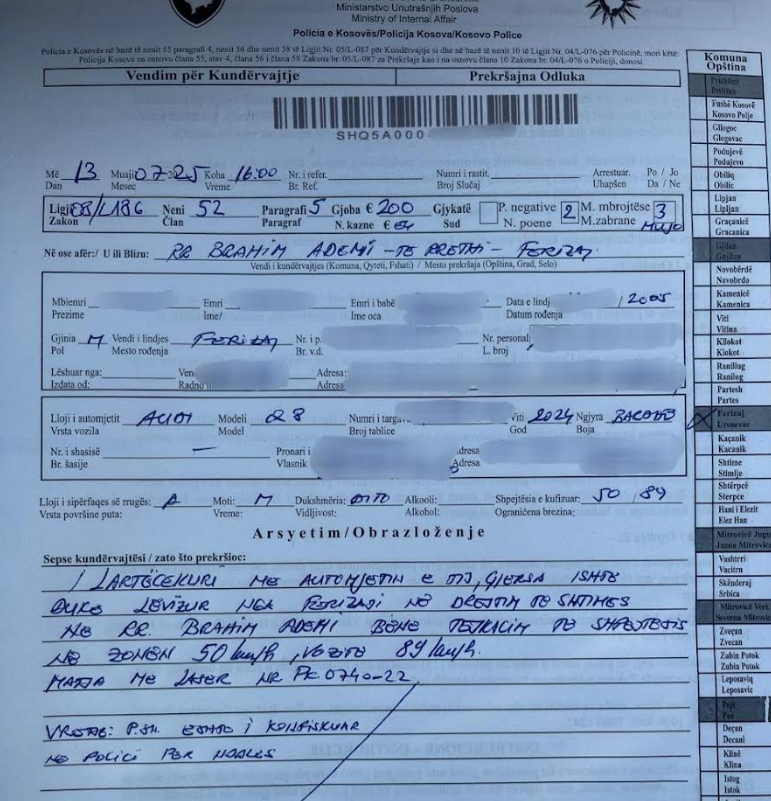 Ministarstvo Unutrašnjih Poslova
Ministry of Internal Affair
Policia e Kosovës/Policija Kosova/Kosovo Police
Policia e Kosovës në bazë të nenit 55 paragrafi 4, nenit 56 dhe nenit 58 të Ligjit Nr. 05/L-087 për Kundërvajtje si dhe në bazë të nenit 10 të Ligjit Nr. 04/L-076 për Policinë, mori këtë:
Policija Kosova na osnovu člana 55, stav 4, člana 56 i člana 58 Zakona br. 05/L-087 za Prekršaje kao i na osnovu člana 10 Zakona br. 04/L-076 o Policiji, donosi
Vendim për Kundërvajtje Prekršajna Odluka
SHQ5A000
Më 13 Muaji 07 2025 Koha 16:00 Nr. i refer. Numri i rastit. Arrestuar. Po / Jo
Dan Mesec Vreme Br. Ref. Broj Slučaj Uhapšen Da / Ne
Ligji 08/L186 Neni 52 Paragrafi 5 Gjoba € 200 Gjykatë P. negative 2 M. mbrojtëse 3
Zakon Član Paragraf N. kazne € Sud N. poene M. zabrane MUJO
Në ose afër:/ U ili Blizu: RR BRAHIM ADEMI - TE - FERIZAJ.
Vendi i kundërvajtjes (Komuna, Qyteti, Fshati) / Mesto prekršaja (Opština, Grad, Selo)
Mbiemri Emri Emri i babë Data e lindj / 2005
Prezime Ime/ Ime oca Datum rođenja
Gjinia M Vendi i lindjes FERIZAJ Nr. i p. Nr. personal
Pol Mesto rođenja Br. v.d. L. broj
Lëshuar nga: Ven Adresa:
Izdata od: Radno Adresa
Lloji i automjetit AUDI Modeli Q8 Numri i targa Viti 2024 Ngjyra
Vrsta vozila Model Broj tablice God Boja
Nr. i shasisë — Pronari i Adresa
Br. šasije Vlasnik Adresa
Lloji i sipërfaqes së rrugës: A Moti: M Dukshmëria: DITO Alkooli: Shpejtësia e kufizuar: 50 / 89
Vrsta površine puta: Vreme: Vidljivost: Alkohol: Ograničena brezina:
Arsyetim/Obrazloženje
Sepse kundërvajtësi / zato što prekršioc:
I LARTËCEKURI ME AUTOMJETIN E TIJ, GJERSA ISHTE
DUKE LËVIZUR NGA FERIZAJI NË DREJTIM TË SHTIMES
NË RR. BRAHIM ADEMI BËNË TEJKALIM TË SHPEJTËSIS
NË ZONËN 50 km/h, VOZITE 89 km/h.
MATJA ME LASER NR PK.0740-22
VREJTJE: P.SH. ËSHTË I KONFISKUAR
NË POLICI PËR NDALES
Komuna
Opština
Prishtinë
Priština
Fushë Kosovë
Kosovo Polje
Gllogoc
Glogovac
Podujevë
Podujevo
Obiliq
Obilic
Lipjan
Lipljan
Graçanicë
Gracanica
Gjilan
Gnjilan
Novobërdë
Novobrdo
Kamenicë
Kamenica
Viti
Vitina
Kllokot
Klokot
Ranillug
Ranilug
Partesh
Partes
Ferizaj
Urosevac
Kaçanik
Kacanik
Shtime
Stimlje
Shtërpcë
Sterpce
Hani i Elezit
Elez Han
Mitrovicë Jugu
Juzna Mitrovica
Vushtrri
Vucitrn
Skënderaj
Srbica
Mitrovicë Veri
Severna Mitrovica
Zveçan
Zvecan
Zubin Potok
Zubin Potok
Leposaviq
Leposavic
Pejë
Pec
Deçan
Decani
Klinë
Klina
Istog
Istok